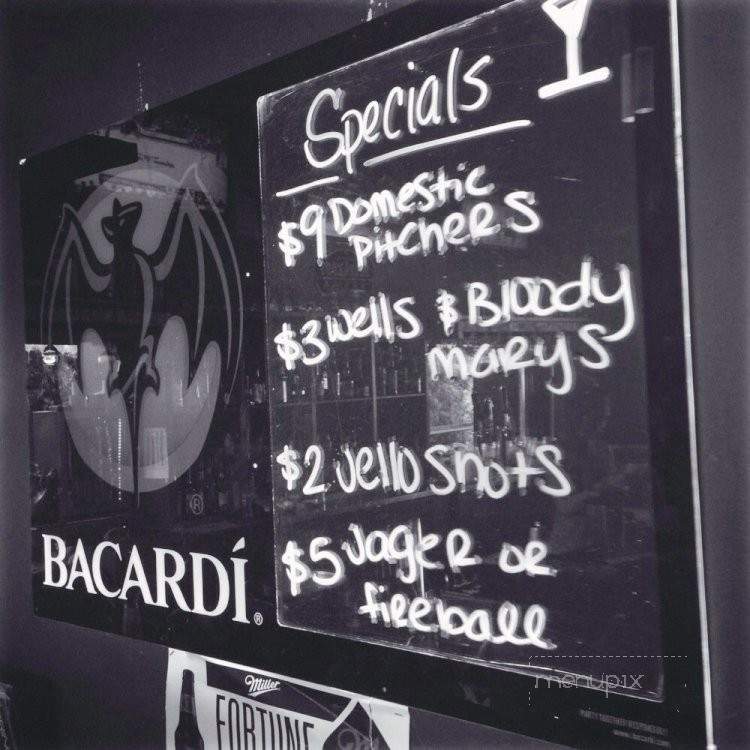 Specials
$9 Domestic
Pitchers
$3 wells & Bloody
marys
$2 Jello shots
$5 Jager or
fireball
BACARDÍ®
Miller
FORTUNE
menupix
www.bacardi.com